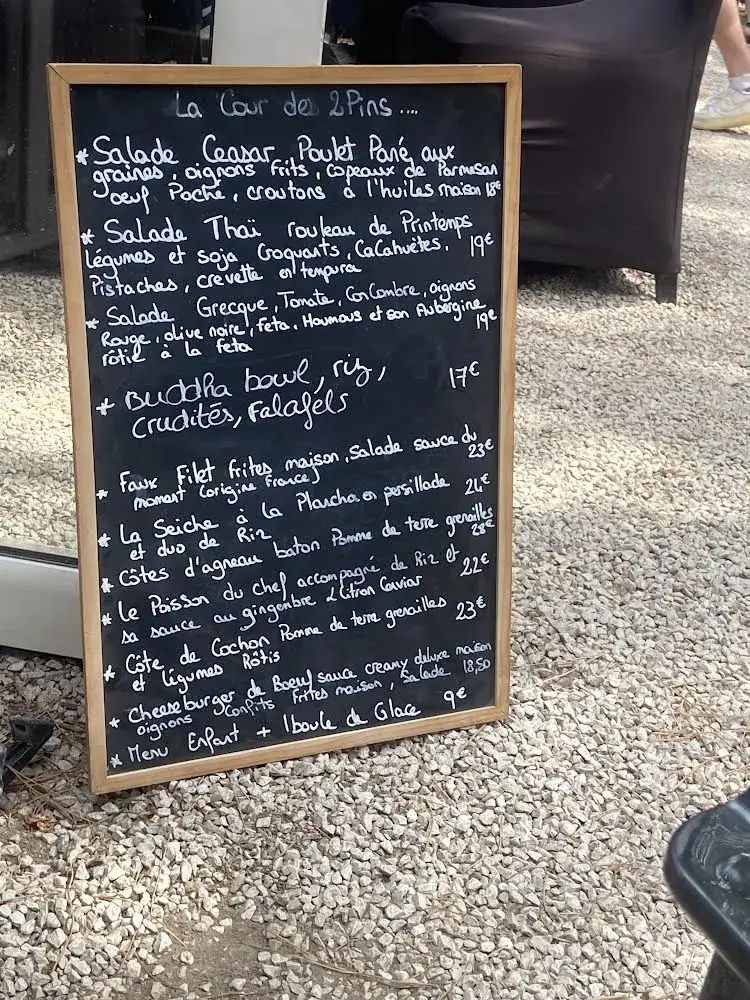 La Cour des 2 Pins....
* Salade Ceasar, Poulet Pané aux
graines, oignons frits, copeaux de Parmesan
oeuf Poché, croutons à l'huiles maison 18€
* Salade Thaï rouleau de Printemps
légumes et soja Croquants, CaCahuètes,
19€
Pistaches, crevette en tempura
* Salade Grecque, Tomate, ConCombre, oignons
Rouge, olive noire, feta, Houmous et son Aubergine
rôtie à la feta
19€
* Buddha bowl, riz,
17€
crudités, Falafels
* Faux Filet frites maison, Salade sauce du
moment (origine France)
23€
* La Seiche à la Plancha en persillade
et duo de Riz
24€
* Côtes d'agneau baton Pomme de terre grenailles
28€
* Le Poisson du chef accompagné de Riz et
sa sauce au gingembre & Citron Caviar
22€
* Côte de Cochon Pomme de terre grenailles
et légumes Rôtis
23€
* Cheeseburger de Boeuf sauce creamy deluxe maison
oignons confits frites maison, Salade 18,50
* Menu Enfant + 1 boule de Glace 9€